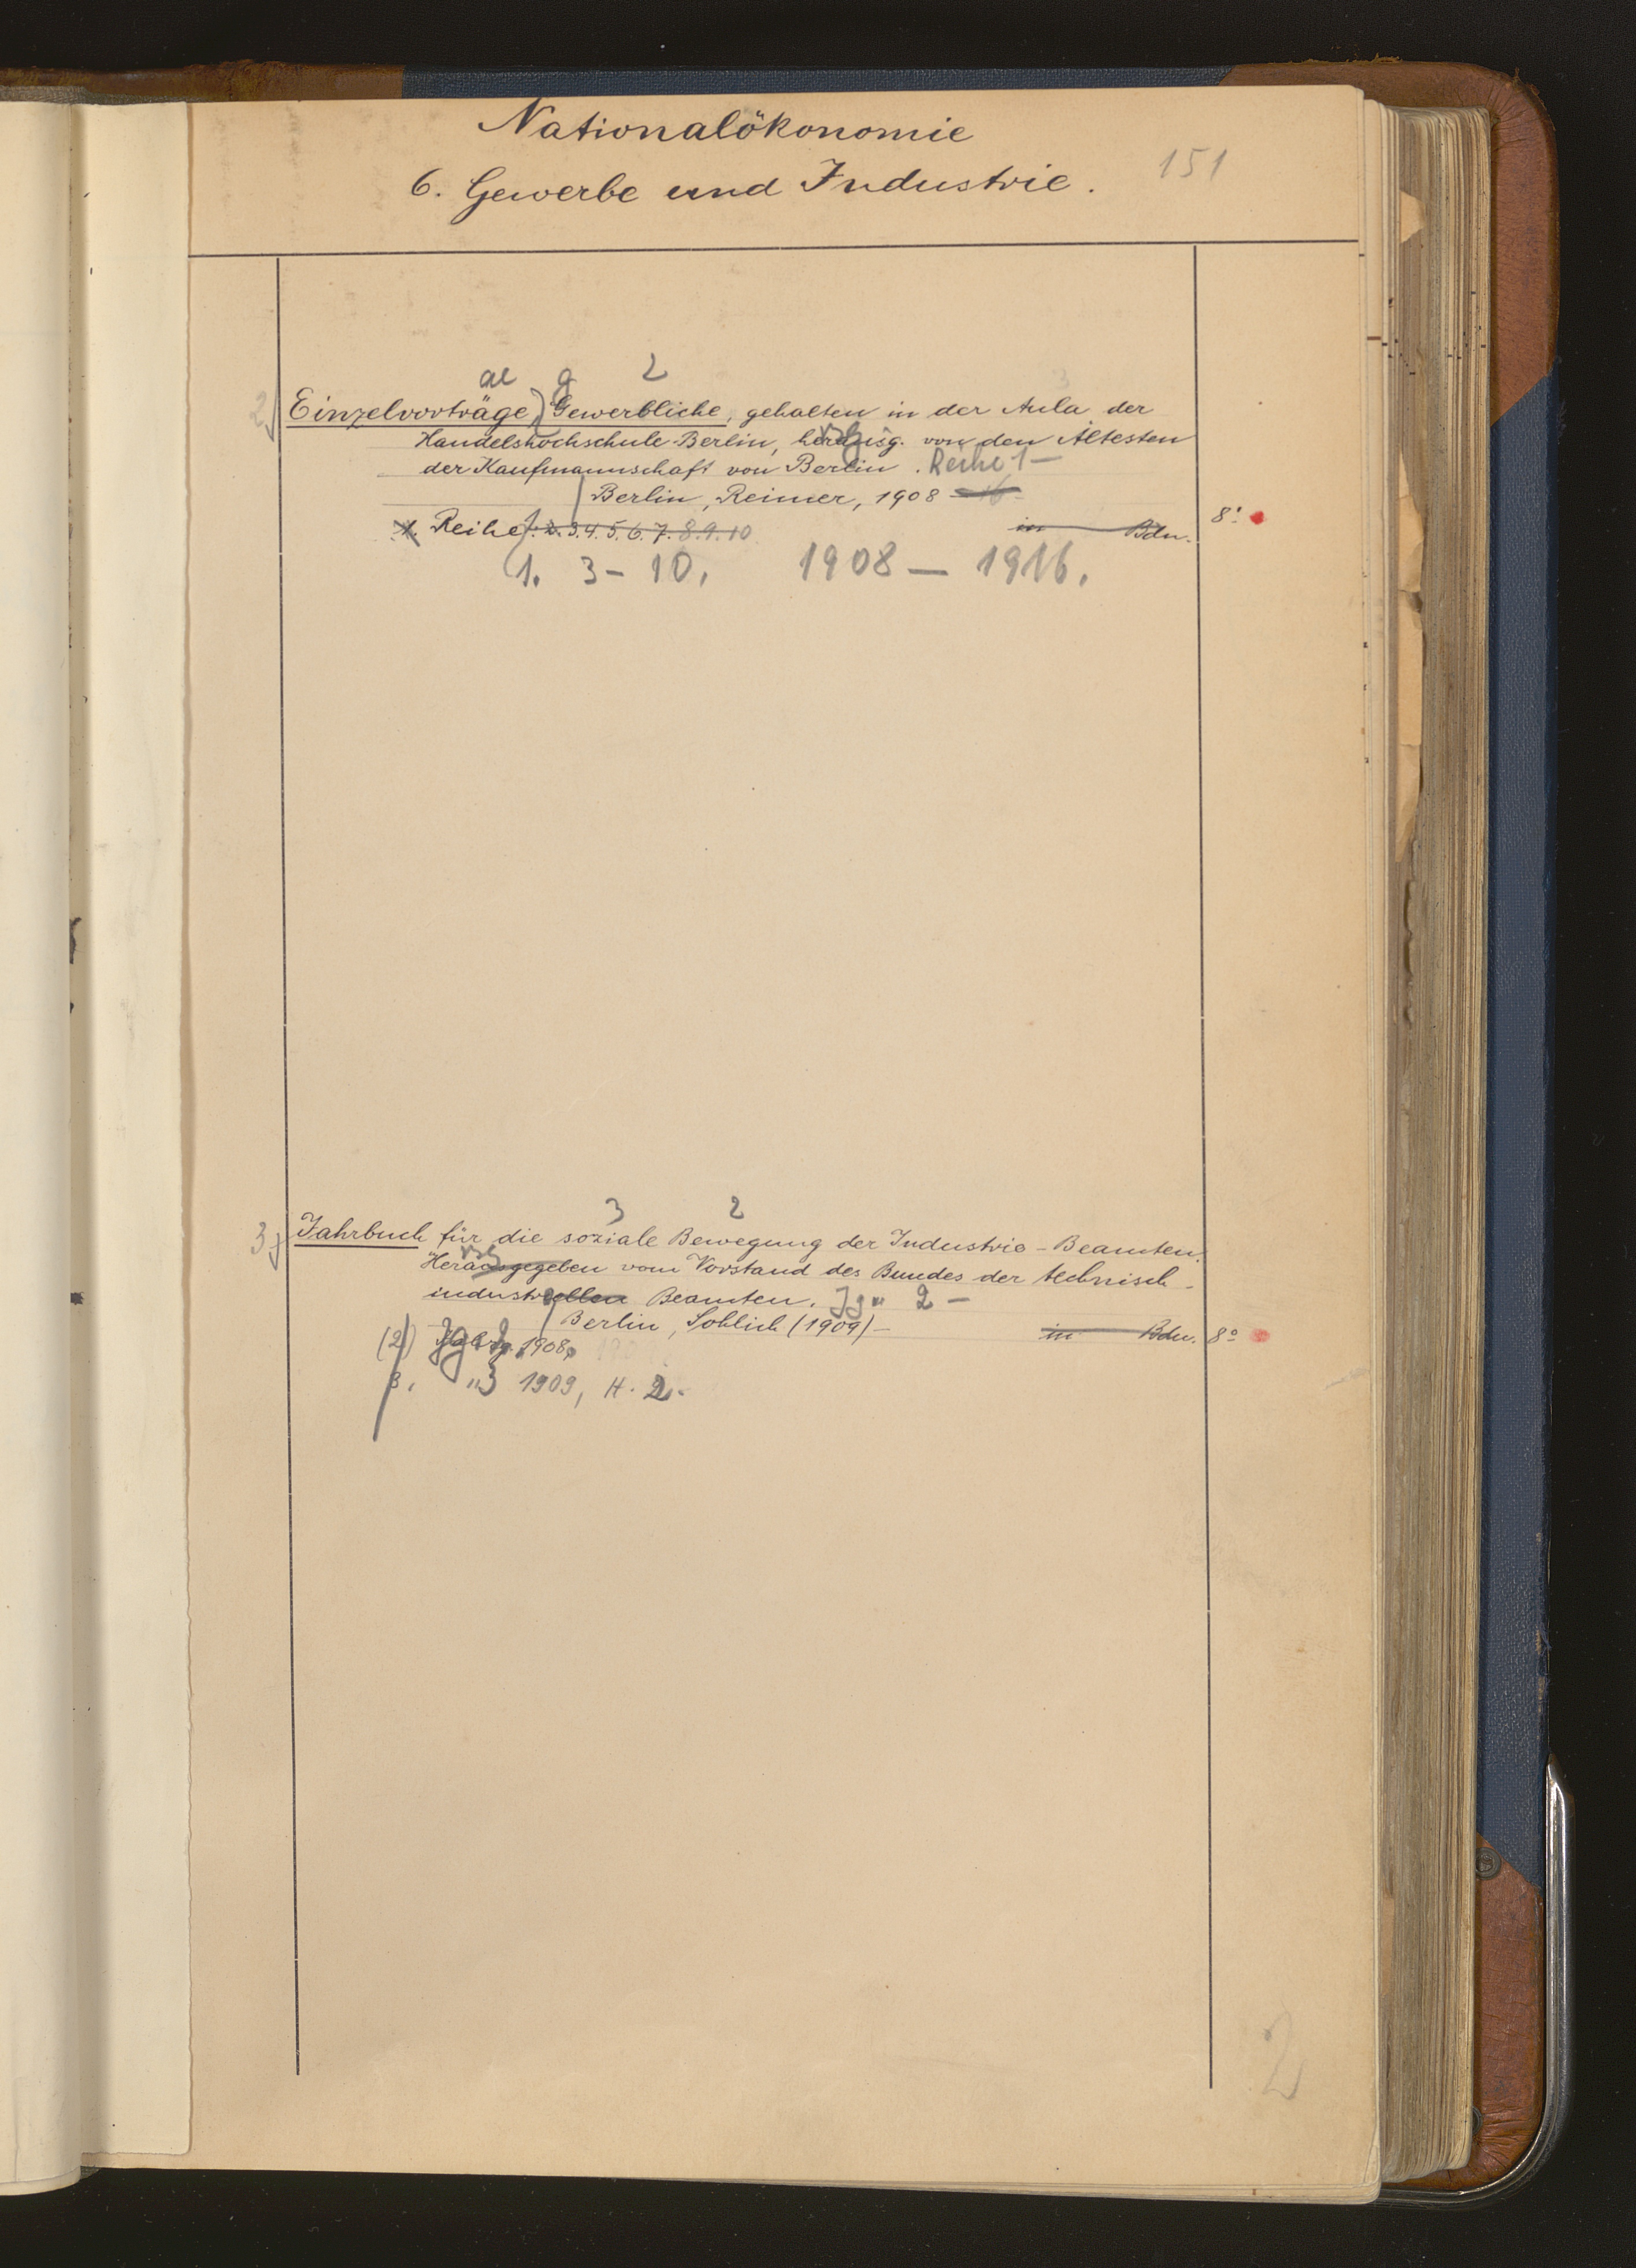 Nationalökonomie
6. Gewerbe und Industrie.
151
ae g 2
2j Einzelvorträge, Gewerbliche, gehalten in der Aula der
Handelshochschule Berlin, herausg. von den Ältesten
der Kaufmannschaft von Berlin. Reihe 1 —
Berlin, Reimer, 1908 — 16
1. Reihe. 2. 3. 4. 5. 6. 7. 8. 9. 10 in Bdn. 8°
1. 3 – 10. 1908 — 1916.
3 2
3j Jahrbuch für die soziale Bewegung der Industrie-Beamten.
Herausgegeben vom Vorstand des Bundes der technisch-
industriellen Beamten. Jg. 2 —
Berlin, Sohlich (1909) — in Bdn. 8°
(2) Jg. 2 1908.
3. " 3 1909, H. 2.
2